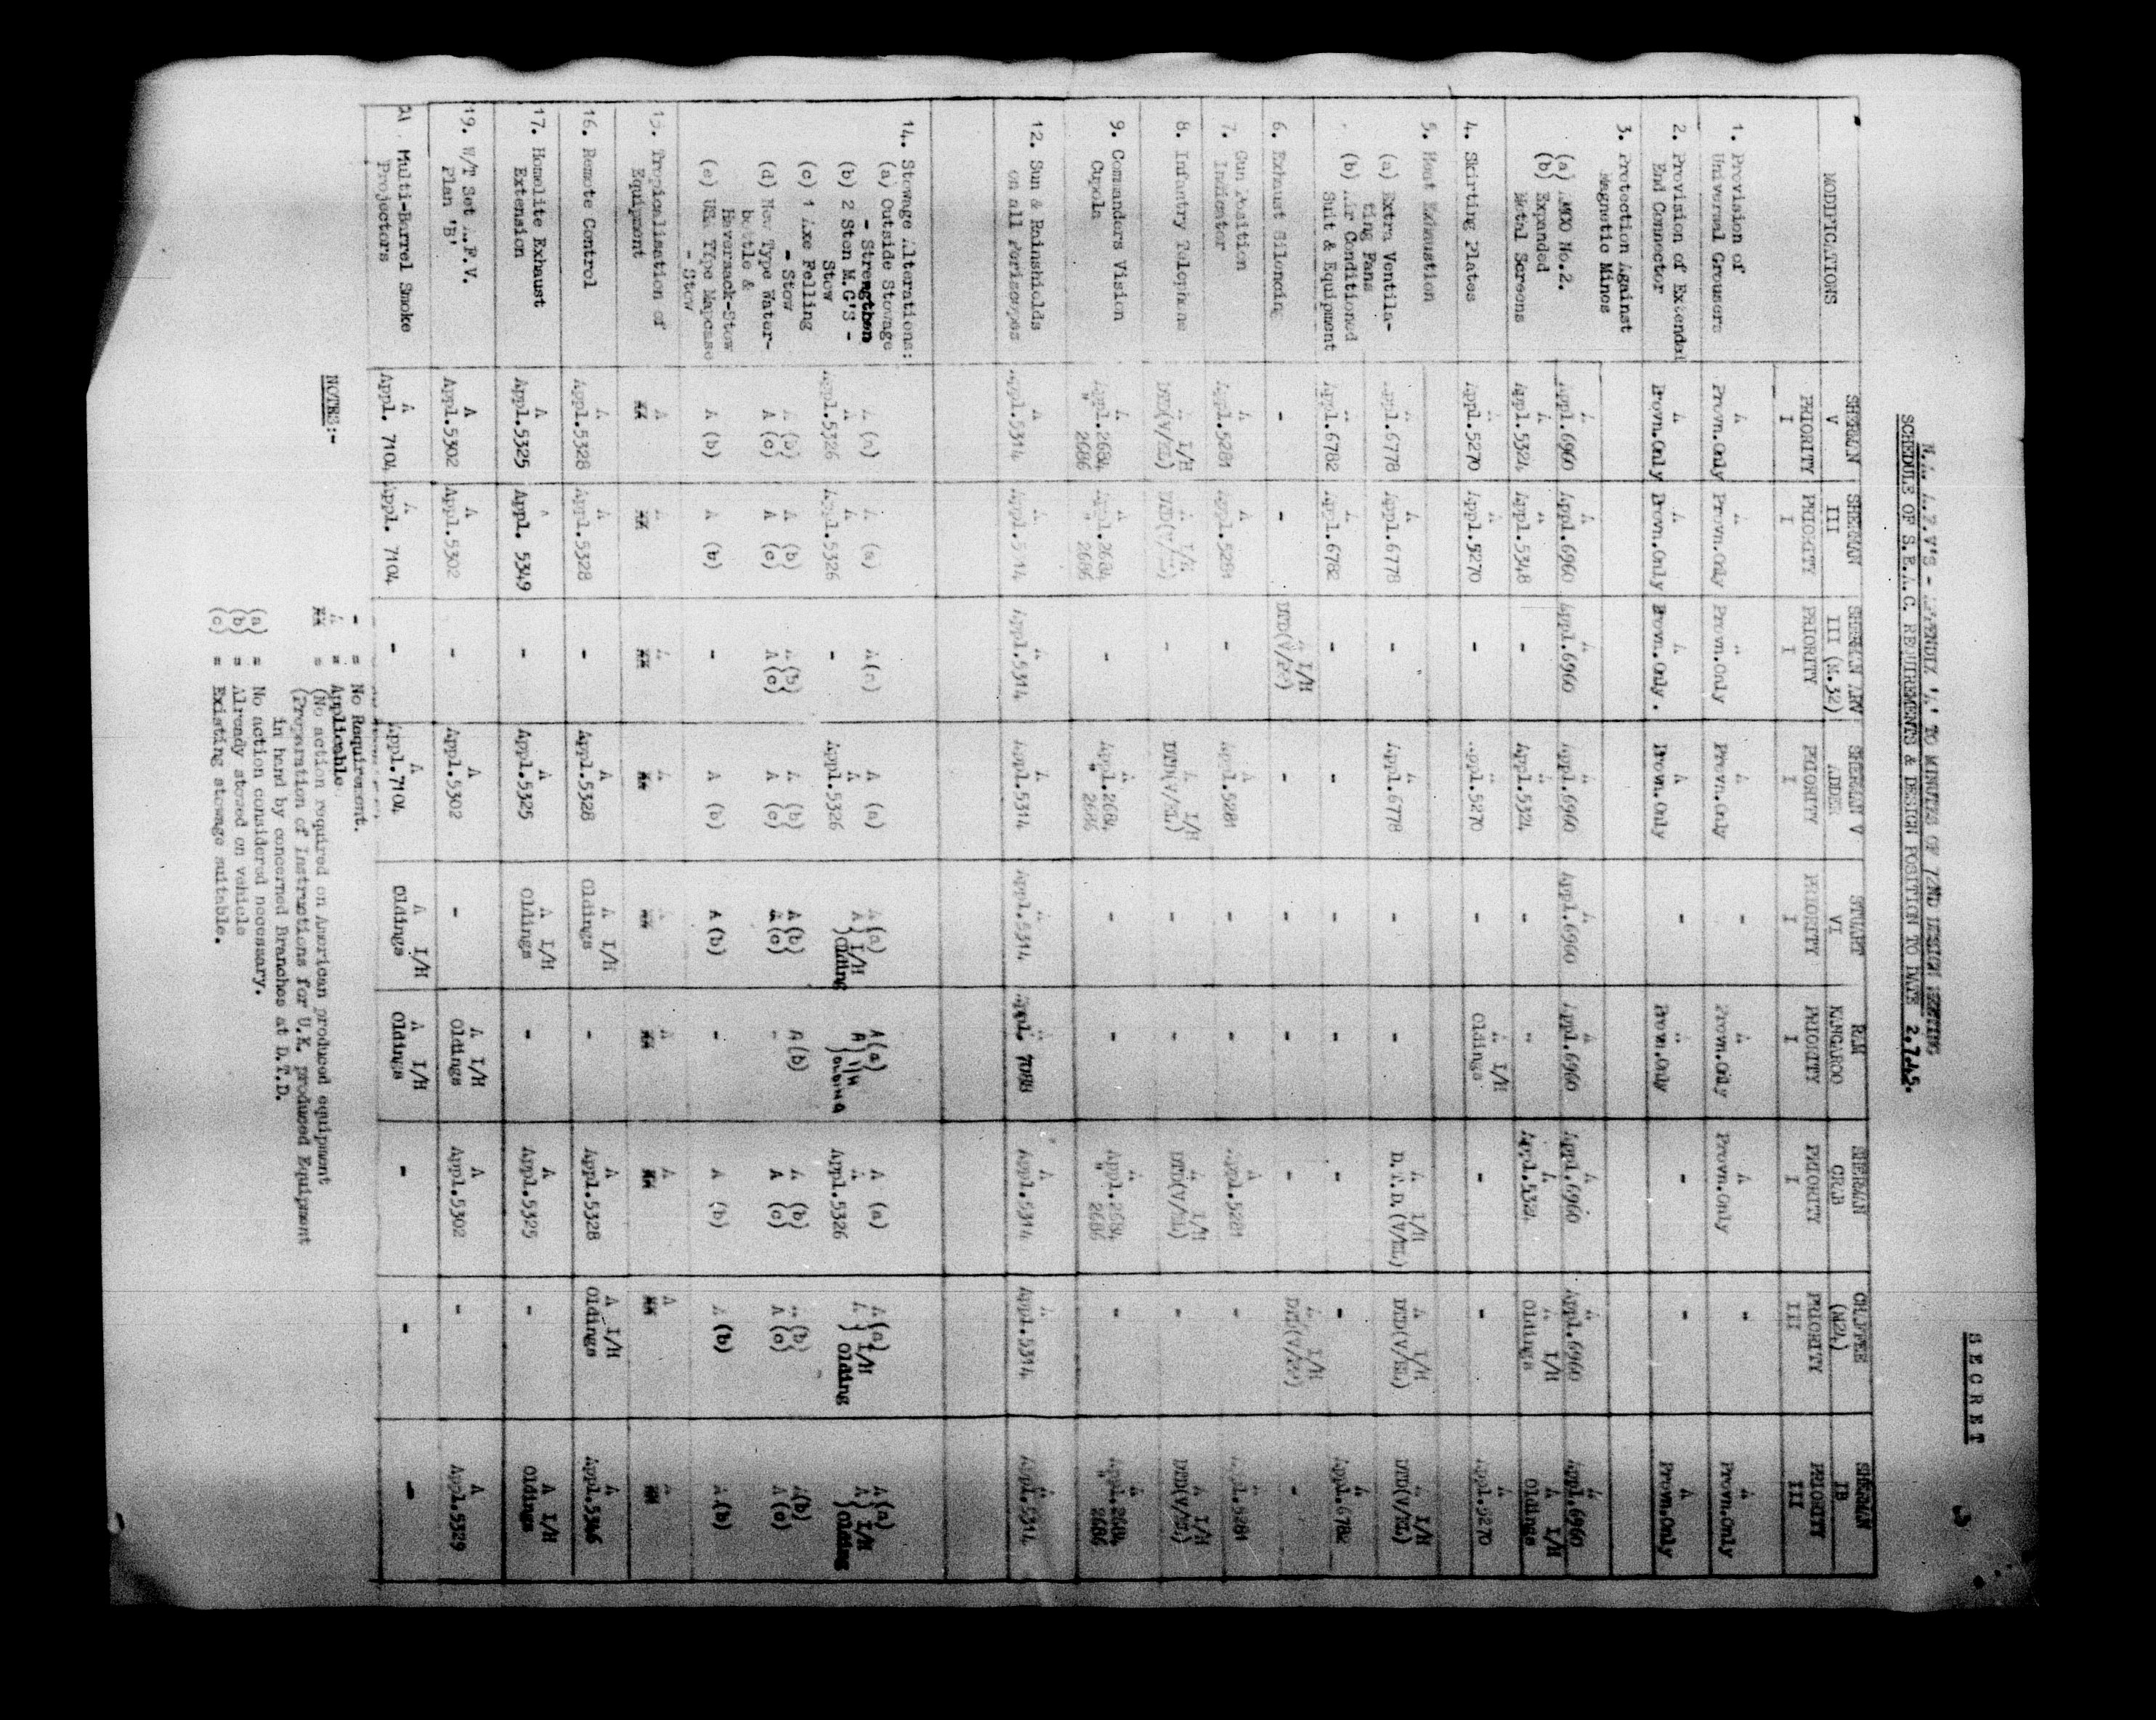 SECRET
N.A. A.F.V'S - APPENDIX 'A' TO MINUTES OF 72ND DESIGN MEETING
SCHEDULE OF S.E.A.C. REQUIREMENTS & DESIGN POSITION TO DATE 2.7.45.
MODIFICATIONS | SHERMAN V PRIORITY I | SHERMAN III PRIORITY I | SHERMAN ARV III (M.32) PRIORITY I | SHERMAN V ADDER PRIORITY I | STUART VI PRIORITY I | RAM KANGAROO PRIORITY I | SHERMAN CRAB PRIORITY I | CHAFFEE (M24) PRIORITY III | SHERMAN IB PRIORITY III
1. Provision of Universal Grousers | A Provn.Only | A Provn.Only | A Provn.Only | A Provn.Only | - | A Provn.Only | A Provn.Only | - | A Provn.Only
2. Provision of Extended End Connector | A Provn.Only | A Provn.Only | A Provn.Only. | A Provn.Only | - | A Provn.Only | - | - | A Provn.Only
3. Protection Against Magnetic Mines
(a) No.2. | A Appl.6960 | A Appl.6960 | A Appl.6960 | A Appl.6960 | A Appl.6960 | A Appl.6960 | A Appl.6960 | A Appl.6960 | A Appl.6960
(b) Expanded Metal Screens | A Appl.5324 | A Appl.5348 | - | A Appl.5324 | - | - | A Appl.5324 | A I/H Oldings | A I/H Oldings
4. Skirting Plates | A Appl.5270 | A Appl.5270 | - | A Appl.5270 | - | A I/H Oldings | - | - | A Appl.5270
5. Heat Exhaustion
(a) Extra Ventilating Fans | A Appl.6778 | A Appl.6778 | - | A Appl.6778 | - | - | A I/H D.T.D.(V/EL) | A I/H DTD(V/EL) | A I/H DTD(V/EL)
(b) Air Conditioned Suit & Equipment | A Appl.6782 | A Appl.6782 | - | - | - | - | - | - | A Appl.6782
6. Exhaust Silencing | - | - | A I/H | - | - | - | - | A I/H | -
7. Gun Position Indicator | A Appl.5281 | A Appl.5281 | - | A Appl.5281 | - | - | A Appl.5281 | - | A Appl.5281
8. Infantry Telephone | A I/H DTD(V/EL) | A I/H DTD(V/EL) | - | A I/H DTD(V/EL) | - | - | A I/H DTD(V/EL) | - | A I/H DTD(V/EL)
9. Commanders Vision Cupola | A Appl.2684 " 2686 | A Appl.2684 " 2686 | - | A Appl.2684 " 2686 | - | - | A Appl.2684 " 2686 | - | A Appl.2684 " 2686
12. Sun & Rainshields on all Periscopes | A Appl.5314 | A Appl.5314 | A Appl.5314 | A Appl.5314 | A Appl.5314 | A Appl. 7088 | A Appl.5314 | A Appl.5314 | A Appl.5314
14. Stowage Alterations:
(a) Outside Stowage - Strengthen | A (a) | A (a) | A (a) | A (a) | A (a) | A (a) | A (a) | A (a) | A (a)
(b) 2 Sten M.G'S - Stow | A Appl.5326 | A Appl.5326 | - | A Appl.5326 | A I/H Olding | A I/H Olding | A Appl.5326 | A I/H Olding | A I/H Olding
(c) 1 Axe Felling - Stow | A (b) | A (b) | A (b) | A (b) | A (b) | A (b) | A (b) | A (b) | A (b)
(d) New Type Water-bottle & Haversack-Stow | A (c) | A (c) | A (c) | A (c) | A (c) | - | A (c) | A (c) | A (c)
(e) USA Type Mapcase - Stow | A (b) | A (b) | - | A (b) | A (b) | - | A (b) | A (b) | A (b)
15. Tropicalisation of Equipment | A XX | A XX | A XX | A XX | A XX | A XX | A XX | A XX | A XX
16. Remote Control | A Appl.5328 | A Appl.5328 | - | A Appl.5328 | A I/H Oldings | - | A Appl.5328 | A I/H Oldings | A Appl.5346
17. Homelite Exhaust Extension | A Appl.5325 | A Appl. 5349 | - | A Appl.5325 | A I/H Oldings | - | A Appl.5325 | - | A I/H Oldings
19. W/T Set A.F.V. Plan 'B' | A Appl.5302 | A Appl.5302 | - | A Appl.5302 | - | A I/H Oldings | A Appl.5302 | - | A Appl.5329
21 Multi-Barrel Smoke Projectors | A Appl. 7104 | A Appl. 7104 | - | A Appl.7104 | A I/H Oldings | A I/H Oldings | - | - | -
NOTES:-
- = No Requirement.
A = Applicable
XX = (No action required on American produced equipment
(Preparation of Instructions for U.K. produced Equipment
in hand by concerned Branches at D.T.D.
(a) = No action considered necessary.
(b) = Already stowed on vehicle
(c) = Existing stowage suitable.